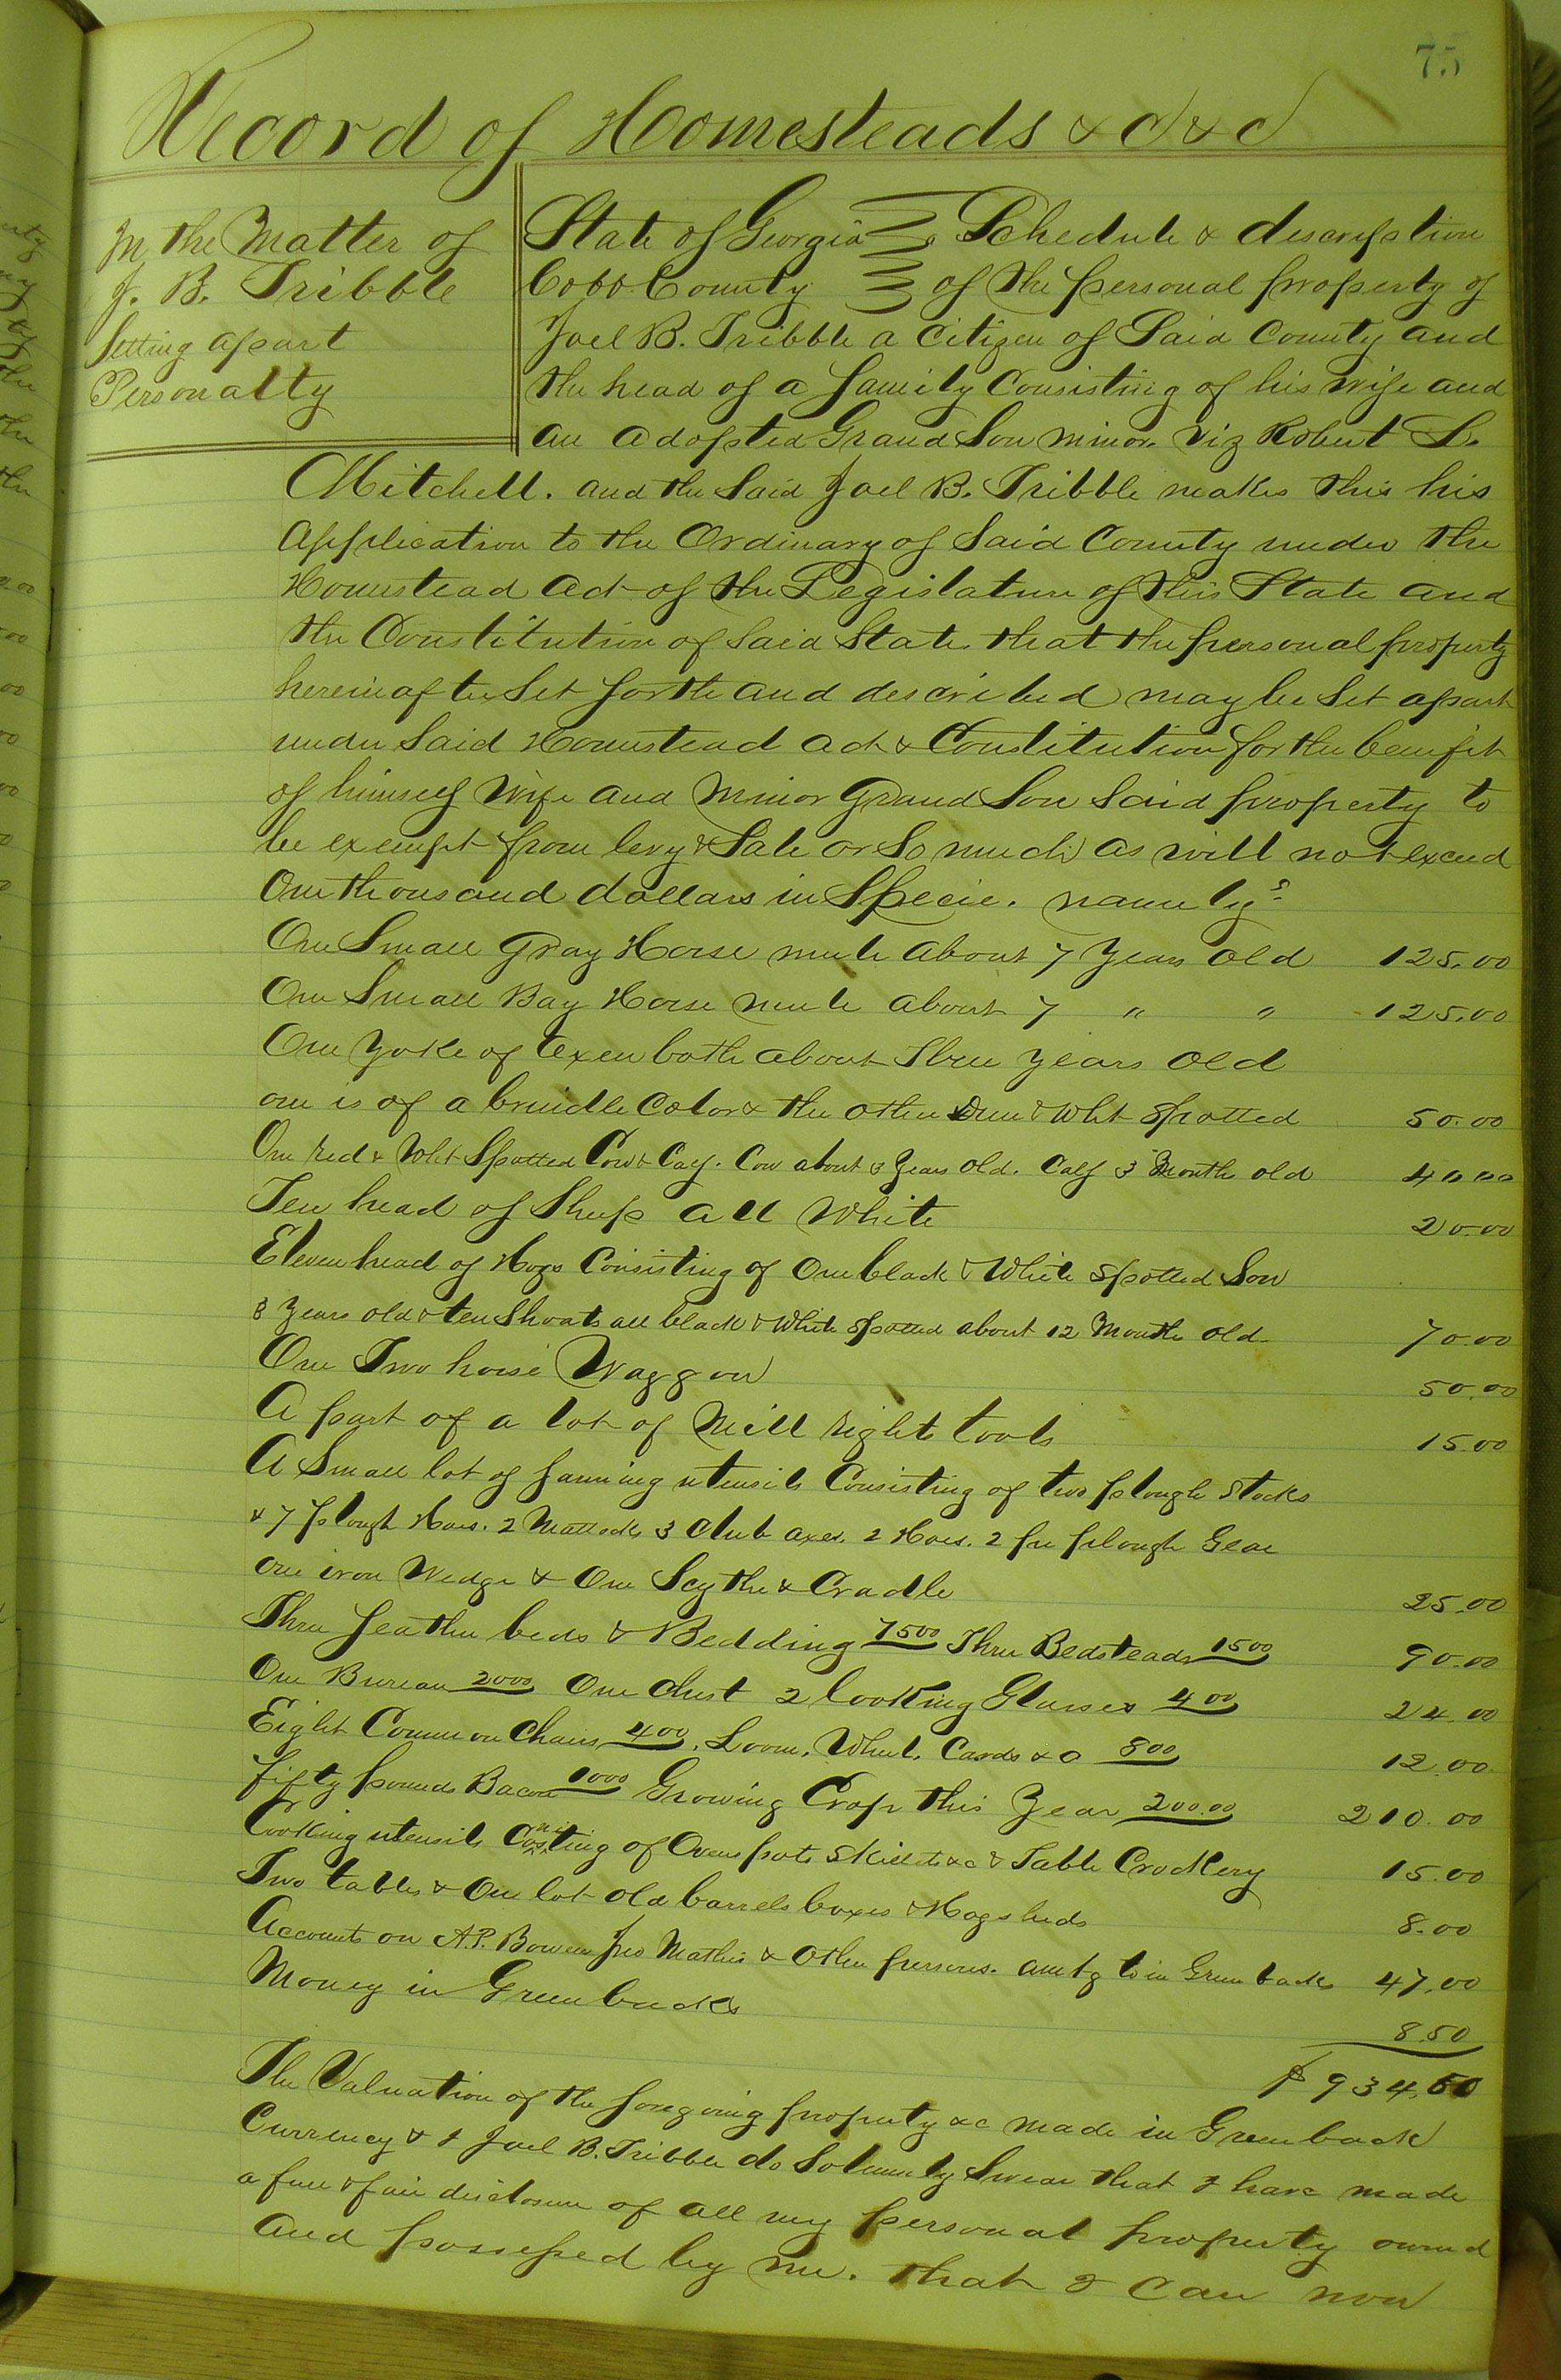 75
Record of Homesteads &c &c
In the Matter of
J. B. Tribble
Setting apart
Personalty
State of Georgia Schedule & descripstion
Cobb County of the personal property of
Joel B. Tribble a Citizen of Said County and
the head of a family Consisting of his wife and
an adopsted Grand Son minor. Viz Robert L.
Mitchell. and the Said Joel B. Tribble makes this his
Application to the Ordinary of Said County under the
Homestead Act of the Legislature of this State and
the Constitution of Said State. that the personal property
hereinafter Set forth and described may be Set apart
under Said Homestead act & Constitution for the benefit
of himself Wife and Minor Grand Son Said property to
be exempt from levy & Sale or So much as will not exceed
One thousand dollars in Specie. namely:
One Small Gray Horse mule about 7 Years Old 125.00
One Small Bay Horse mule about 7 " " 125.00
One Yoke of Oxen both about Three years old
one is of a brindle Color & the other Dun & Wht Spotted 50.00
One red & Wht Spotted Cow & Calf. Cow about 3 Years old. Calf 3 Months old 40.00
Ten head of Sheep all White 20.00
Eleven head of Hogs Consisting of One black & White Spotted Sow
3 Years old & ten Shoats all black & White Spotted about 12 Months old. 70.00
One Two horse Waggon 50.00
A part of a lot of Mill right tools 15.00
A Small lot of farming utensils Consisting of two plough Stocks
& 7 plough Hoes. 2 Mattocks 3 Club axes. 2 Hoes. 2 pr plough Gear
one iron Wedge & One Scythe & Cradle 25.00
Three feather beds & Bedding 75 00 Three Bedsteads 15 00 90.00
One Bureau 20 00 One Chest 2 looking Glasses 4 00 24.00
Eight Common Chairs 4 00. Loom. Wheel. Cards &c 8 00 12.00
fifty pounds Bacon 10 00 Growing Crop this Year 200.00 210.00
Cooking utensils Consisting of Ovens pots Skillets &c & Table Crockery 15.00
Two tables & One lot old barrels boxes & Hogsheds 8.00
Accounts on A.P. Bowen Jno Mathis & Other persons. amtg to in Greenbacks 47.00
Money in Greenbacks 8.50
$934.50
The Valuation of the foregoing property &c made in Greenback
Currency & I Joel B. Tribble do Solemnly Swear that I have made
a full & fair disclosure of all my personal property owned
and possessed by me. that I can now